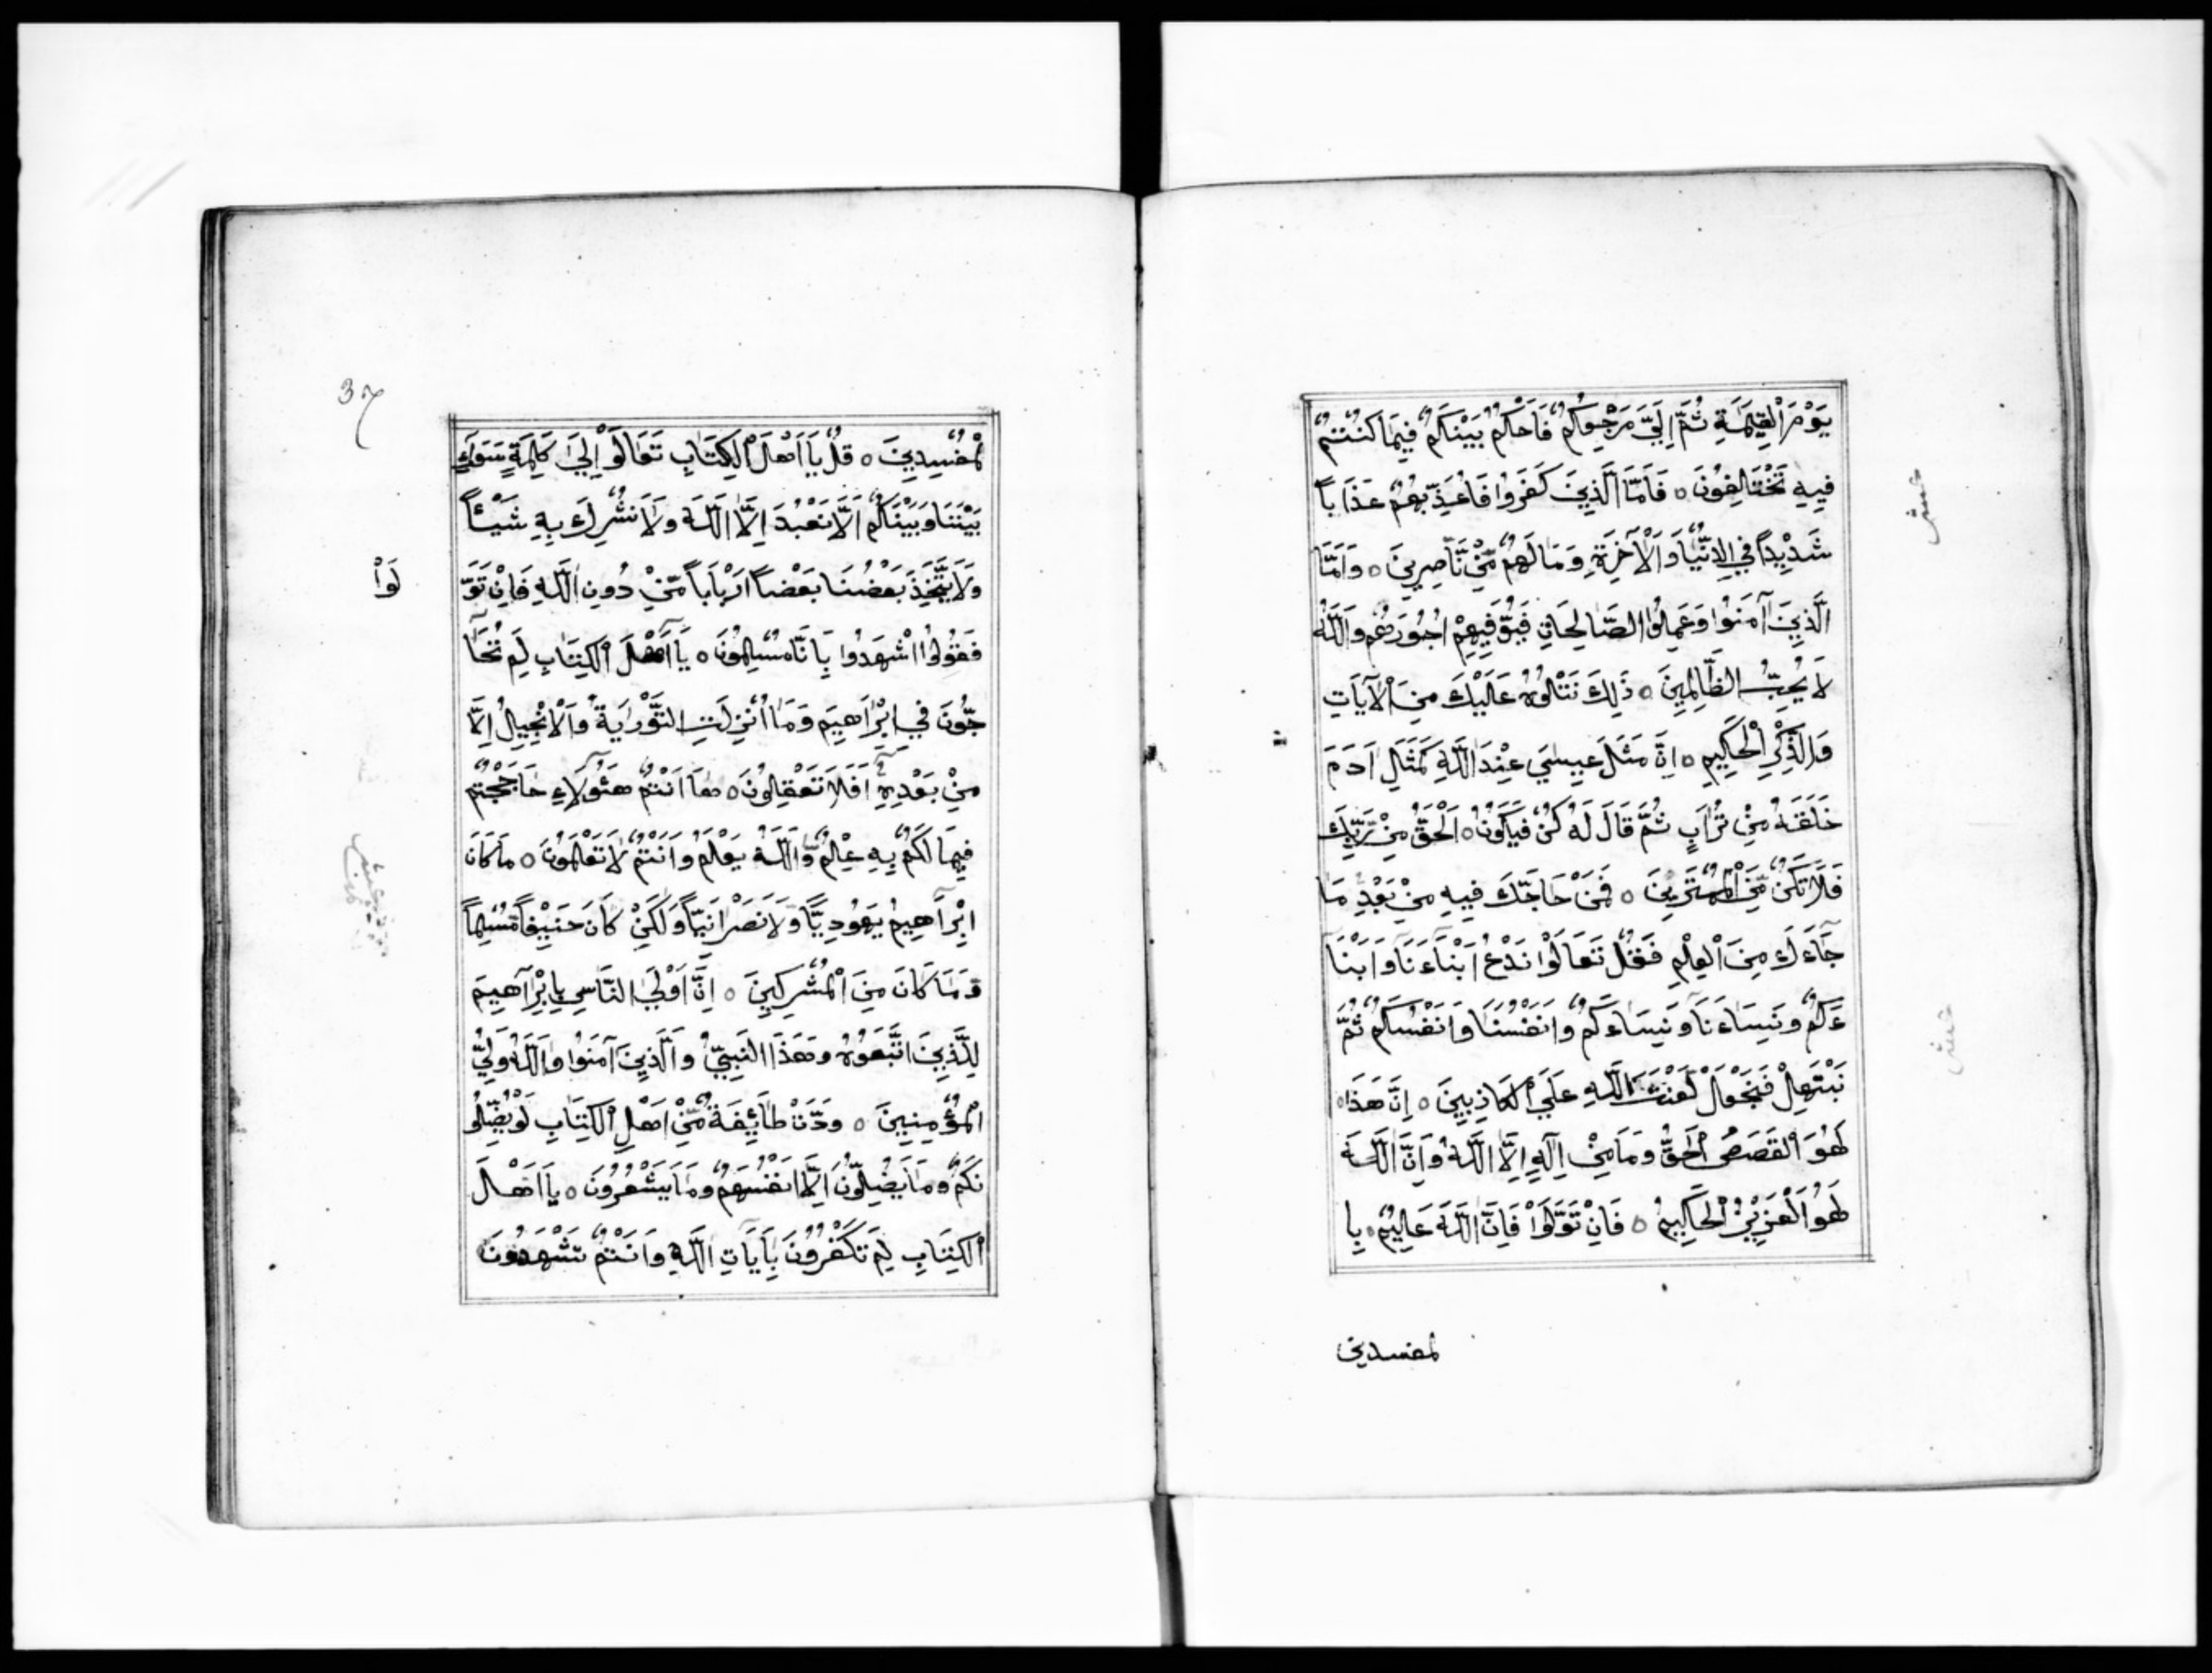 يَوْمَ الْقِيٰمَةِ ثُمَّ اِلَيَّ مَرْجِعُكُمْ فَاَحْكُمُ بَيْنَكُمْ فِيْمَا كُنْتُمْ
فِيهِ تَخْتَلِفُونَ ٥ فَاَمَّا الَّذِينَ كَفَرُوا فَاُعَذِّبُهُمْ عَذَاباً
شَدِيْداً فِي الدُّنْيَا وَالْآخِرَةِ وَمَا لَهُمْ مِّنْ نَّاصِرِينَ ٥ وَاَمَّا
الَّذِينَ آمَنُوا وَعَمِلُوا الصَّالِحَاتِ فَيُوَفِّيهِمْ اُجُورَهُمْ وَاللّٰهُ
لَا يُحِبُّ الظَّالِمِينَ ٥ ذٰلِكَ نَتْلُوْهُ عَلَيْكَ مِنَ الْآيَاتِ
وَالذِّكْرِ الْحَكِيمِ ٥ اِنَّ مَثَلَ عِيسٰي عِنْدَ اللّٰهِ كَمَثَلِ اَدَمَ
خَلَقَهُ مِنْ تُرَابٍ ثُمَّ قَالَ لَهُ كُنْ فَيَكُونُ ٥ اَلْحَقُّ مِنْ رَّبِّكَ
فَلَا تَكُنْ مِّنَ الْمُمْتَرِينَ ٥ فَمَنْ حَاجَّكَ فِيهِ مِنْ بَعْدِ مَا
جَآءَكَ مِنَ الْعِلْمِ فَقُلْ تَعَالَوْا نَدْعُ اَبْنَآءَنَا وَاَبْنَآ
ءَكُمْ وَنِسَاءَنَا وَنِسَاءَكُمْ وَاَنْفُسَنَا وَاَنْفُسَكُمْ ثُمَّ
نَبْتَهِلْ فَنَجْعَلْ لَعْنَتَ اللّٰهِ عَلَي الْكَاذِبِينَ ٥ اِنَّ هَذَا
لَهُوَ الْقَصَصُ الْحَقُّ وَمَا مِنْ اِلٰهٍ اِلَّا اللّٰهُ وَاِنَّ اللّٰهَ
لَهُوَ الْعَزِيْزُ الْحَكِيمُ ٥ فَاِنْ تَوَلَّوْا فَاِنَّ اللّٰهَ عَلِيْمٌ بِا
لمفسدين
عشر
عشر
37
لْمُفْسِدِينَ ٥ قُلْ يَا اَهْلَ الْكِتَابِ تَعَالَوْا اِلٰي كَلِمَةٍ سَوَاءٍ
بَيْنَنَا وَبَيْنَكُمْ اَلَّا نَعْبُدَ اِلَّا اللّٰهَ وَلَا نُشْرِكَ بِهِ شَيْئاً
وَلَا يَتَّخِذَ بَعْضُنَا بَعْضاً اَرْبَاباً مِّنْ دُونِ اللّٰهِ فَاِنْ تَوَ
لَّوْا
فَقُولُوا اشْهَدُوا بِاَنَّا مُسْلِمُونَ ٥ يَا اَهْلَ الْكِتَابِ لِمَ تُحَآ
جُّونَ فِي اِبْرَاهِيمَ وَمَا اُنْزِلَتِ التَّوْرٰيةُ وَالْاِنْجِيلُ اِلَّا
مِنْ بَعْدِهِ اَفَلَا تَعْقِلُونَ ٥ هَا اَنْتُمْ هٰٓؤُلَاءِ حَاجَجْتُمْ
فِيمَا لَكُمْ بِهِ عِلْمٌ وَّاللّٰهُ يَعْلَمُ وَاَنْتُمْ لَا تَعْلَمُونَ ٥ مَا كَانَ
اِبْرَاهِيمُ يَهُودِيًّا وَّلَا نَصْرَانِيًّا وَلَكِنْ كَانَ حَنِيْفاً مُّسْلِماً
وَمَا كَانَ مِنَ الْمُشْرِكِينَ ٥ اِنَّ اَوْلَي النَّاسِ بِاِبْرَاهِيمَ
لَلَّذِينَ اتَّبَعُوْهُ وَهَذَا النَّبِيُّ وَالَّذِينَ آمَنُوا وَاللّٰهُ وَلِيُّ
الْمُؤْمِنِينَ ٥ وَدَّتْ طَائِفَةٌ مِّنْ اَهْلِ الْكِتَابِ لَوْ يُضِلُّو
نَكُمْ وَمَا يُضِلُّونَ اِلَّا اَنْفُسَهُمْ وَمَا يَشْعُرُونَ ٥ يَا اَهْلَ
الْكِتَابِ لِمَ تَكْفُرُونَ بِاَيَاتِ اللّٰهِ وَاَنْتُمْ تَشْهَدُونَ